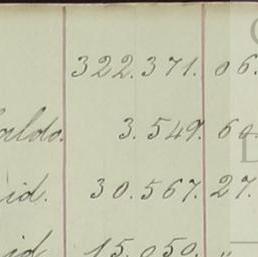 322.371. 06.
saldo. 3.549. 60
id. 30.567. 27.
id 15.050. "